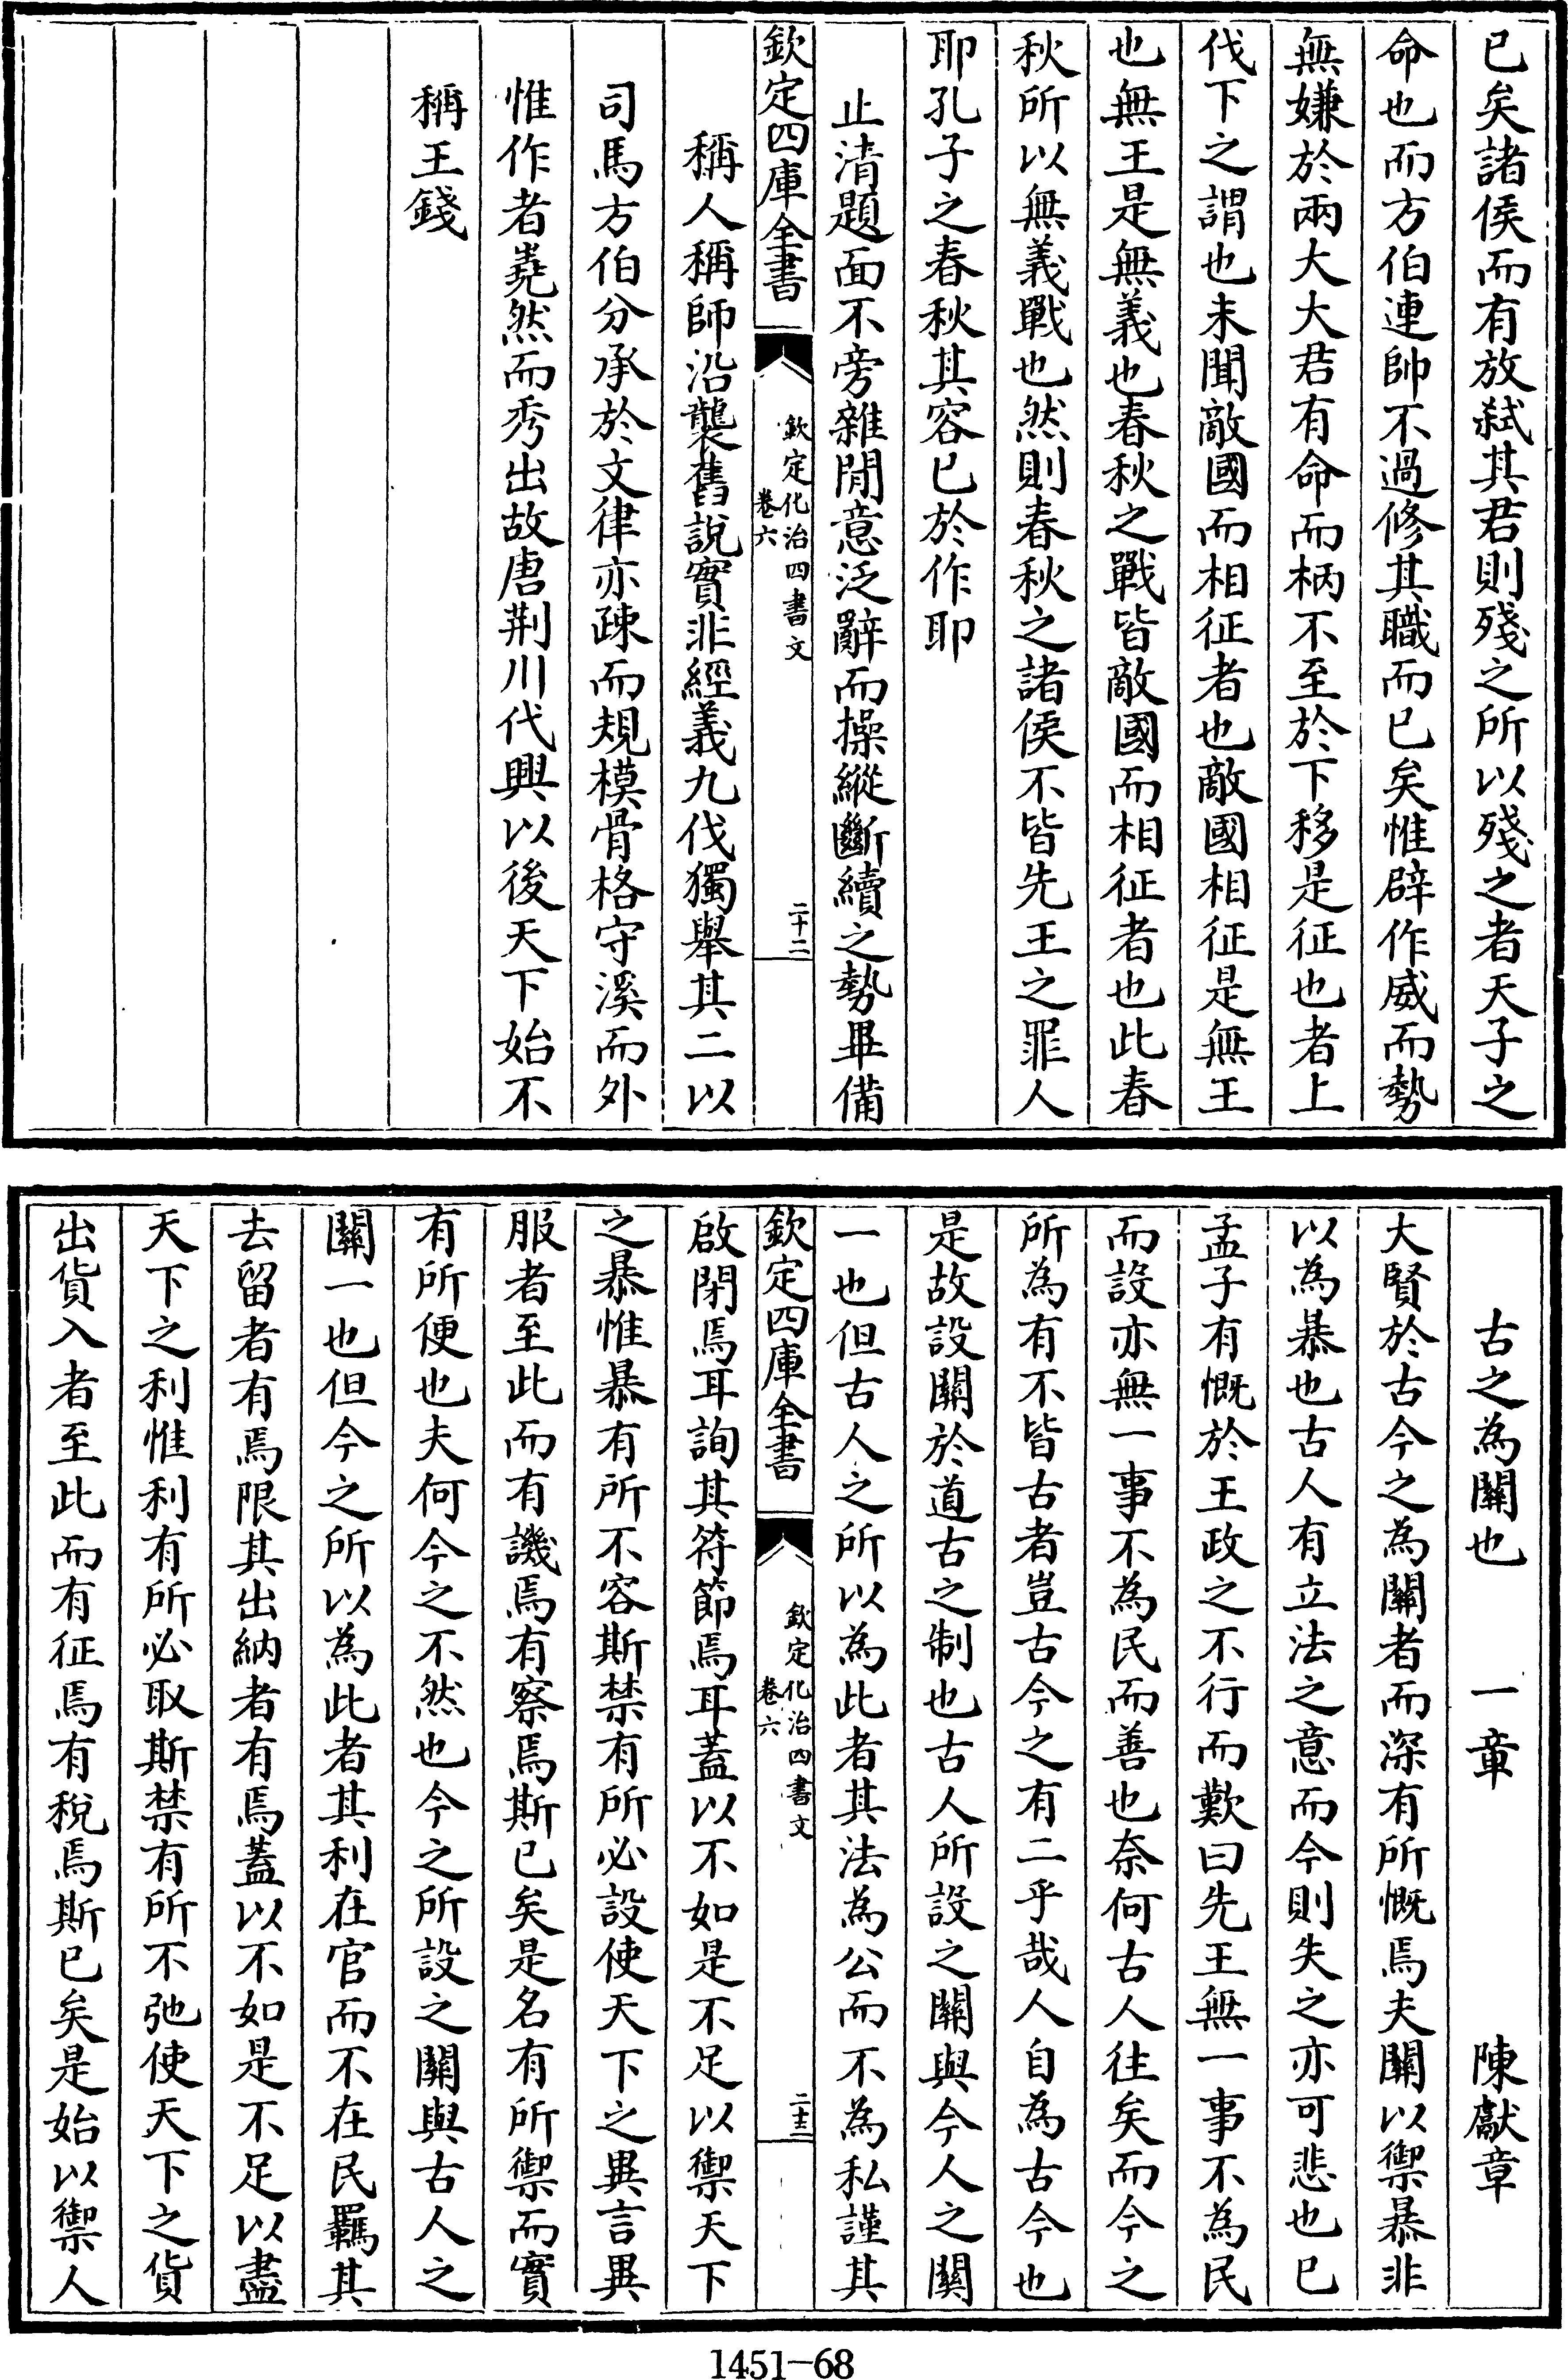 已矣諸侯而有放弑其君則殘之所以殘之者天子之
命也而方伯連帥不過修其職而已矣惟辟作威而勢
無嫌於兩大大君有命而柄不至於下移是征也者上
伐下之謂也未聞敵國而相征者也敵國相征是無王
也無王是無義也春秋之戰皆敵國而相征者也此春
秋所以無義戰也然則春秋之諸侯不皆先王之罪人
耶孔子之春秋其容已於作耶
止清題面不旁雜閒意泛辭而操縱斷續之勢畢備
欽定四庫全書
欽定化治四書文
卷六
二十二
稱人稱師沿襲舊說實非經義九伐獨舉其二以
司馬方伯分承於文律亦疎而規模骨格守溪而外
惟作者嶤然而秀出故唐荆川代興以後天下始不
稱王錢
古之為關也 一章 陳獻章
大賢於古今之為關者而深有所慨焉夫關以禦暴非
以為暴也古人有立法之意而今則失之亦可悲也已
孟子有慨於王政之不行而歎曰先王無一事不為民
而設亦無一事不為民而善也奈何古人往矣而今之
所為有不皆古者豈古今之有二乎哉人自為古今也
是故設關於道古之制也古人所設之關與今人之關
一也但古人之所以為此者其法為公而不為私謹其
欽定四庫全書
欽定化治四書文
卷六
二十三
啟閉焉耳詢其符節焉耳蓋以不如是不足以禦天下
之暴惟暴有所不容斯禁有所必設使天下之異言異
服者至此而有譏焉有察焉斯已矣是名有所禦而實
有所便也夫何今之不然也今之所設之關與古人之
關一也但今之所以為此者其利在官而不在民羈其
去留者有焉限其出納者有焉蓋以不如是不足以盡
天下之利惟利有所必取斯禁有所不弛使天下之貨
出貨入者至此而有征焉有稅焉斯已矣是始以禦人
1451—68